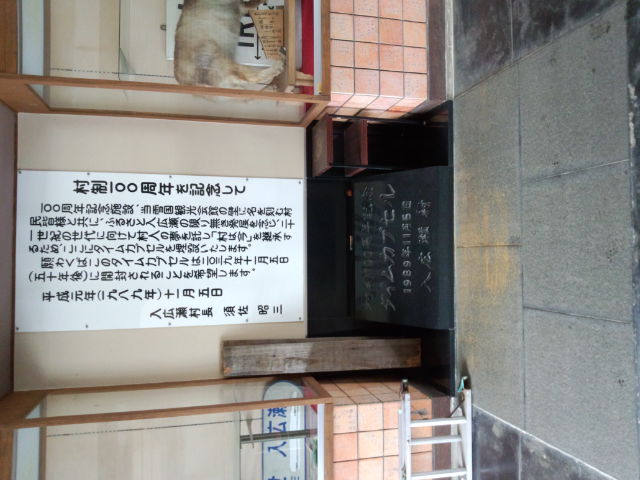 村制一〇〇周年を記念して
一〇〇周年記念施設、当雪国観光会館の壁に名を刻む村
民皆様と共に、ふるさと入広瀬の限り無き発展を念じ、二十
一世紀の世代に向けて村人の夢を託し「村は今」を継承す
るため、ここにタイムカプセルを埋設いたします。
願わくばこのタイムカプセルは二〇三九年十一月五日
(五十年後)に開封されることを希望します。
平成元年(一九八九年)十一月五日
入広瀬村長 須佐 昭三
タイムカプセル
1989年11月5日
入広瀬村
入広瀬